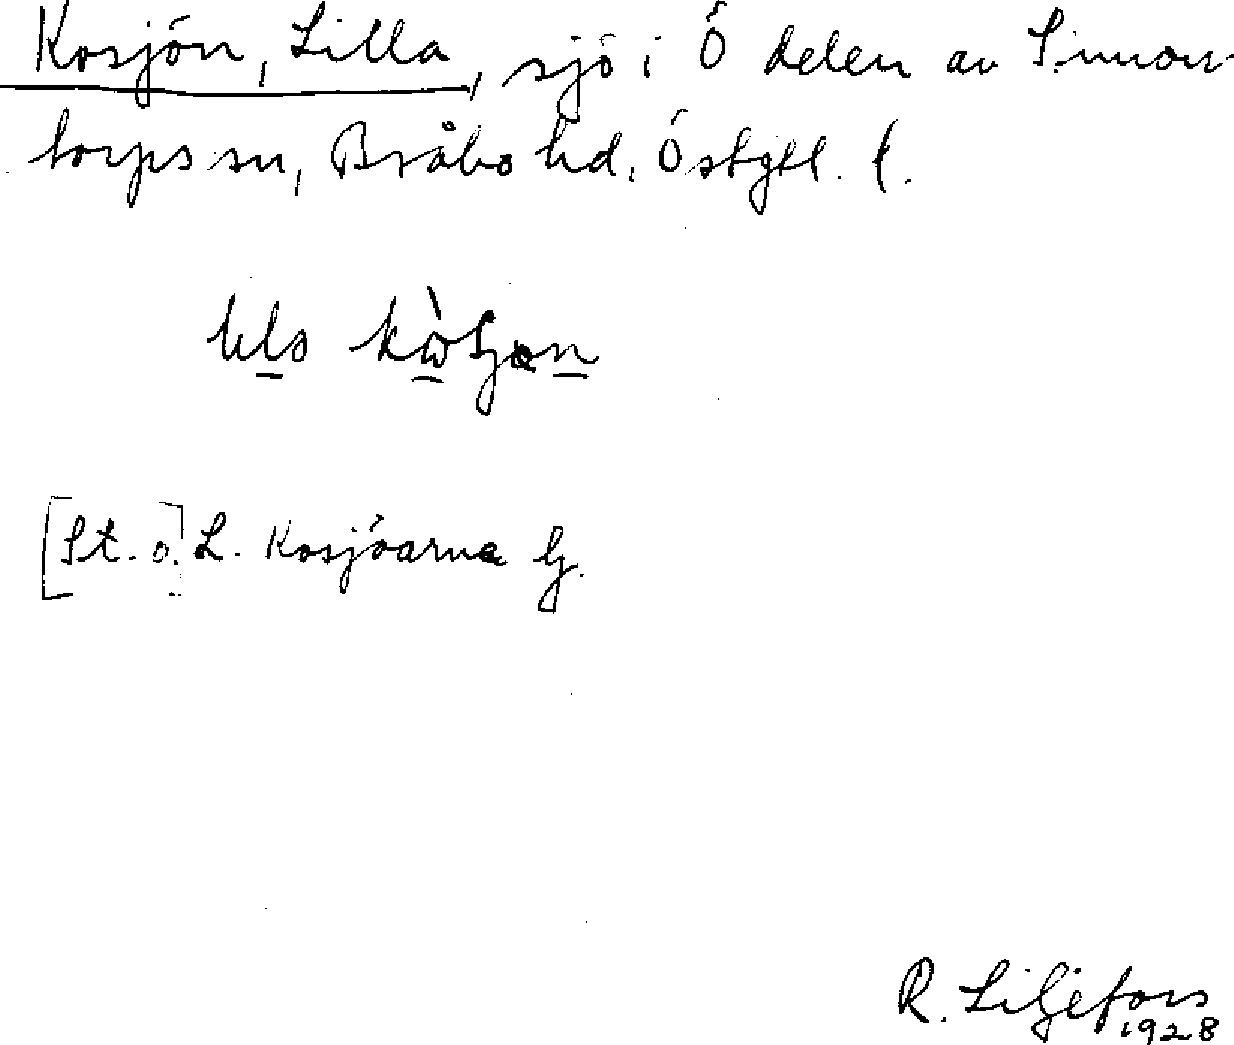 Kosjön, Lilla, sjö i Ö delen av Simon-
torps sn, Bråbo hd, Östgtl. l.
[St. o.] L. Kosjöarna
R. Liljefors
1928